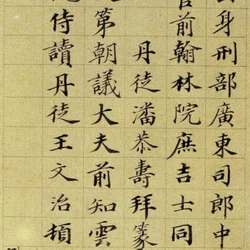 身刑部廣東司郎中
官前翰林院庶吉士同
丹徒潘恭壽拜篆
第朝議大夫前知雲
侍讀丹徒王文治頓